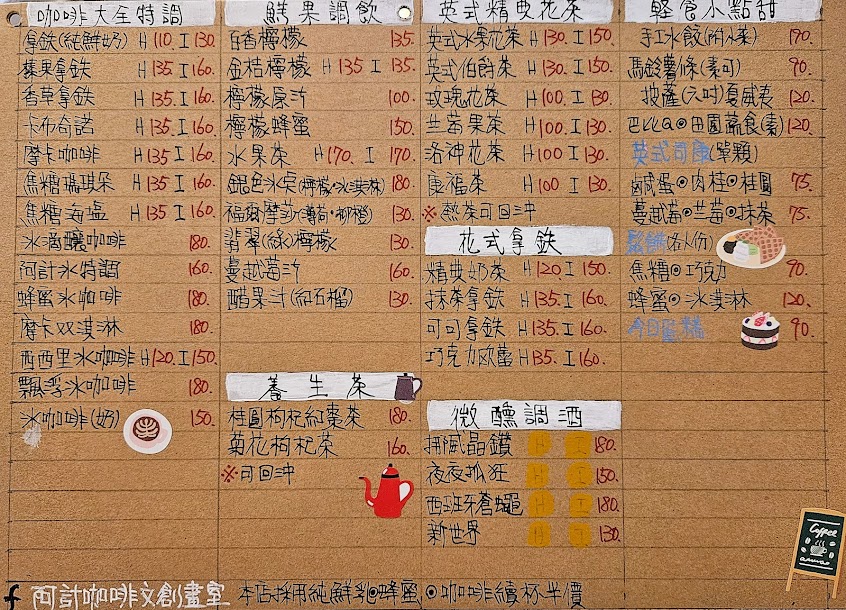 咖啡大全特調
拿鐵(純鮮奶) H 110. I 130.
榛果拿鐵 H 135. I 160.
香草拿鐵 H 135. I 160.
卡布奇諾 H 135. I 160.
摩卡咖啡 H 135 I 160.
焦糖瑪琪朵 H 135 I 160.
焦糖海塩 H 135 I 160.
冰滴釀咖啡 180.
阿計冰特調 160.
蜂蜜冰咖啡 180.
摩卡双淇淋 180.
西西里冰咖啡 H 120. I 150.
飄浮冰咖啡 180.
冰咖啡(奶) 150.
鮮果調飲
百香檸檬 135.
金桔檸檬 H 135 I 135.
檸檬原汁 100.
檸檬蜂蜜 150.
水果茶 H 170. I 170.
銀色冰桌(檸檬·冰淇淋) 180.
福爾摩莎(薄荷·柳橙) 130.
翡翠(綠)檸檬 130.
蔓越莓汁 160.
醋果汁(紅石榴) 130.
養生茶
桂圓枸杞紅棗茶 180.
菊花枸杞茶 160.
※可回沖
英式精典花茶
英式水果花茶 H 130. I 150.
英式伯爵茶 H 130. I 150.
玫瑰花茶 H 100. I 130.
兰莓果茶 H 100. I 130.
洛神花茶 H 100 I 130.
康福茶 H 100 I 130.
※熱茶可回沖
花式拿鉄
精典奶茶 H 120. I 150.
抹茶拿鉄 H 135. I 160.
可可拿鉄 H 135. I 160.
巧克力歐蕾 H 135. I 160.
微醺調酒
挪威晶鑽 H I 180.
夜夜狐狂 H I 150.
西班牙蒼蠅 H I 180.
新世界 H I 130.
軽食小點甜
手工水餃(附小菜) 190.
馬鈴薯條(素可) 90.
披薩(六吋)夏威夷 120.
巴比Q⊙田園蔬食(素) 120.
英式司康(單顆)
鹹蛋⊙肉桂⊙桂圓 75.
蔓越莓⊙兰莓⊙抹茶 75.
鬆餅(2人份)
焦糖⊙巧克力 90.
蜂蜜⊙冰淇淋 120.
今日蛋糕 90.
Coffee
f 阿計咖啡文創畫室 本店採用純鮮乳⊙蜂蜜 ⊙咖啡續杯半價